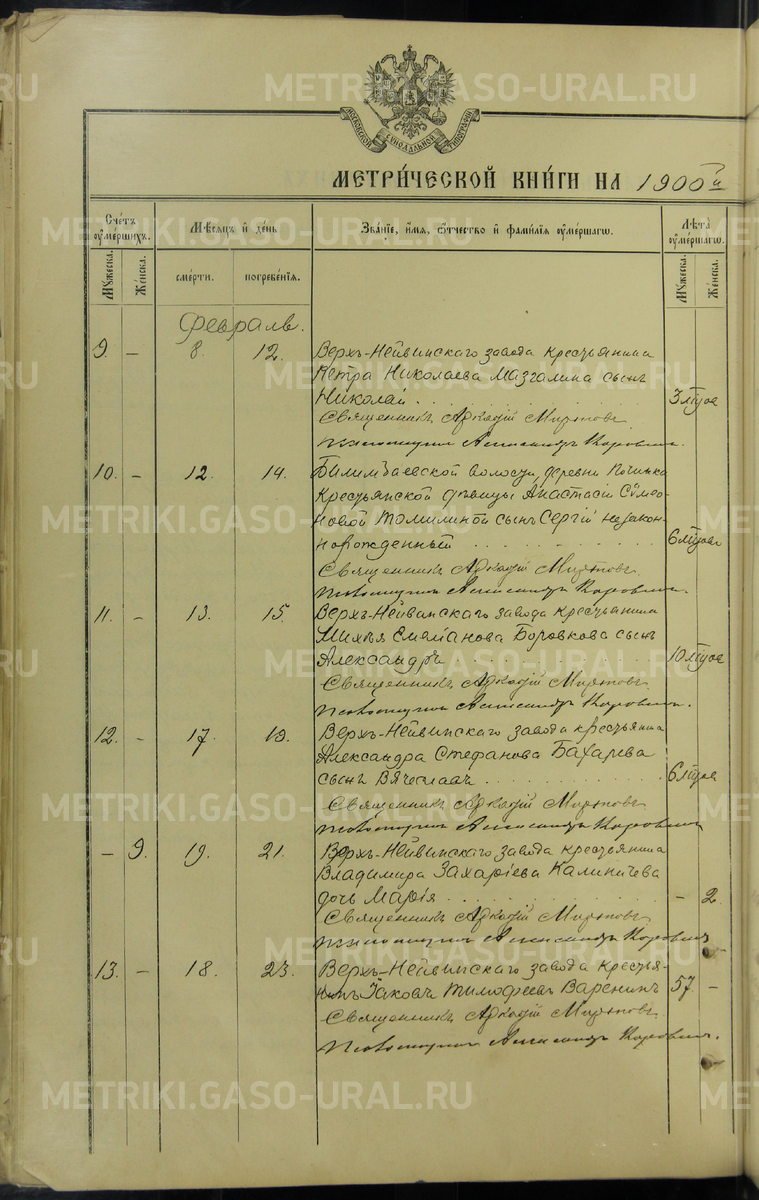 METRIKI.GASO-URAL.RU
МОСКОВСКОЙ СѴНОДАЛЬНОЙ ТИПОГРАФІИ
МЕТРИ́ЧЕСКОЙ КНИ́ГИ НА 1900й
Сче́тъ оумершихъ.
Мѣсяцъ и де́нь
Зва́нїе, и́мѧ, ѻ́тчество и фами́лїѧ оуме́ршагѡ.
Лѣта̀ оуме́ршагѡ.
Мꙋжеска.
Же́нска.
сме́рти.
погребе́нїѧ.
Мꙋжеска.
Же́нска.
Февраль.
9. - 8. 12. Верхъ-Нейвинскаго завода крестьянина
Петра Николаева Мазгалина сынъ
Николай . . . 3 мѣсяц
Священникъ Аркадій Мартовъ
Псаломщикъ Александръ Коровинъ.
10. - 12. 14. Билимбаевской волости, деревни Починка
Крестьянской дѣвицы Анастасіи Сѵмео-
новой Томилиной сынъ Сергій незакон-
норожденный . . . 6 мѣсяц
Священникъ Аркадій Мартовъ
Псаломщикъ Александръ Коровинъ.
11. - 13. 15. Верхъ-Нейвинскаго завода крестьянина
Емельянова Боровкова сынъ
Александръ . . . 10 мѣсяц
Священникъ Аркадій Мартовъ
Псаломщикъ Александръ Коровинъ.
12. - 17. 19. Верхъ-Нейвинскаго завода крестьянина
Александра Стефанова Бахарева
сынъ Вячеславъ . . . 6 мѣсяц
Священникъ Аркадій Мартовъ
Псаломщикъ Александръ Коровинъ
- 9. 19. 21. Верхъ-Нейвинскаго завода крестьянина
Владимира Захаріева Калиничева
дочь Марія . . . - 2.
Священникъ Аркадій Мартовъ
Псаломщикъ Александръ Коровинъ
13. - 18. 23. Верхъ-Нейвинскаго завода крестья-
нинъ Іаковъ Тимофеевъ Варенинъ 57 -
Священникъ Аркадій Мартовъ
Псаломщикъ Александръ Коровинъ.